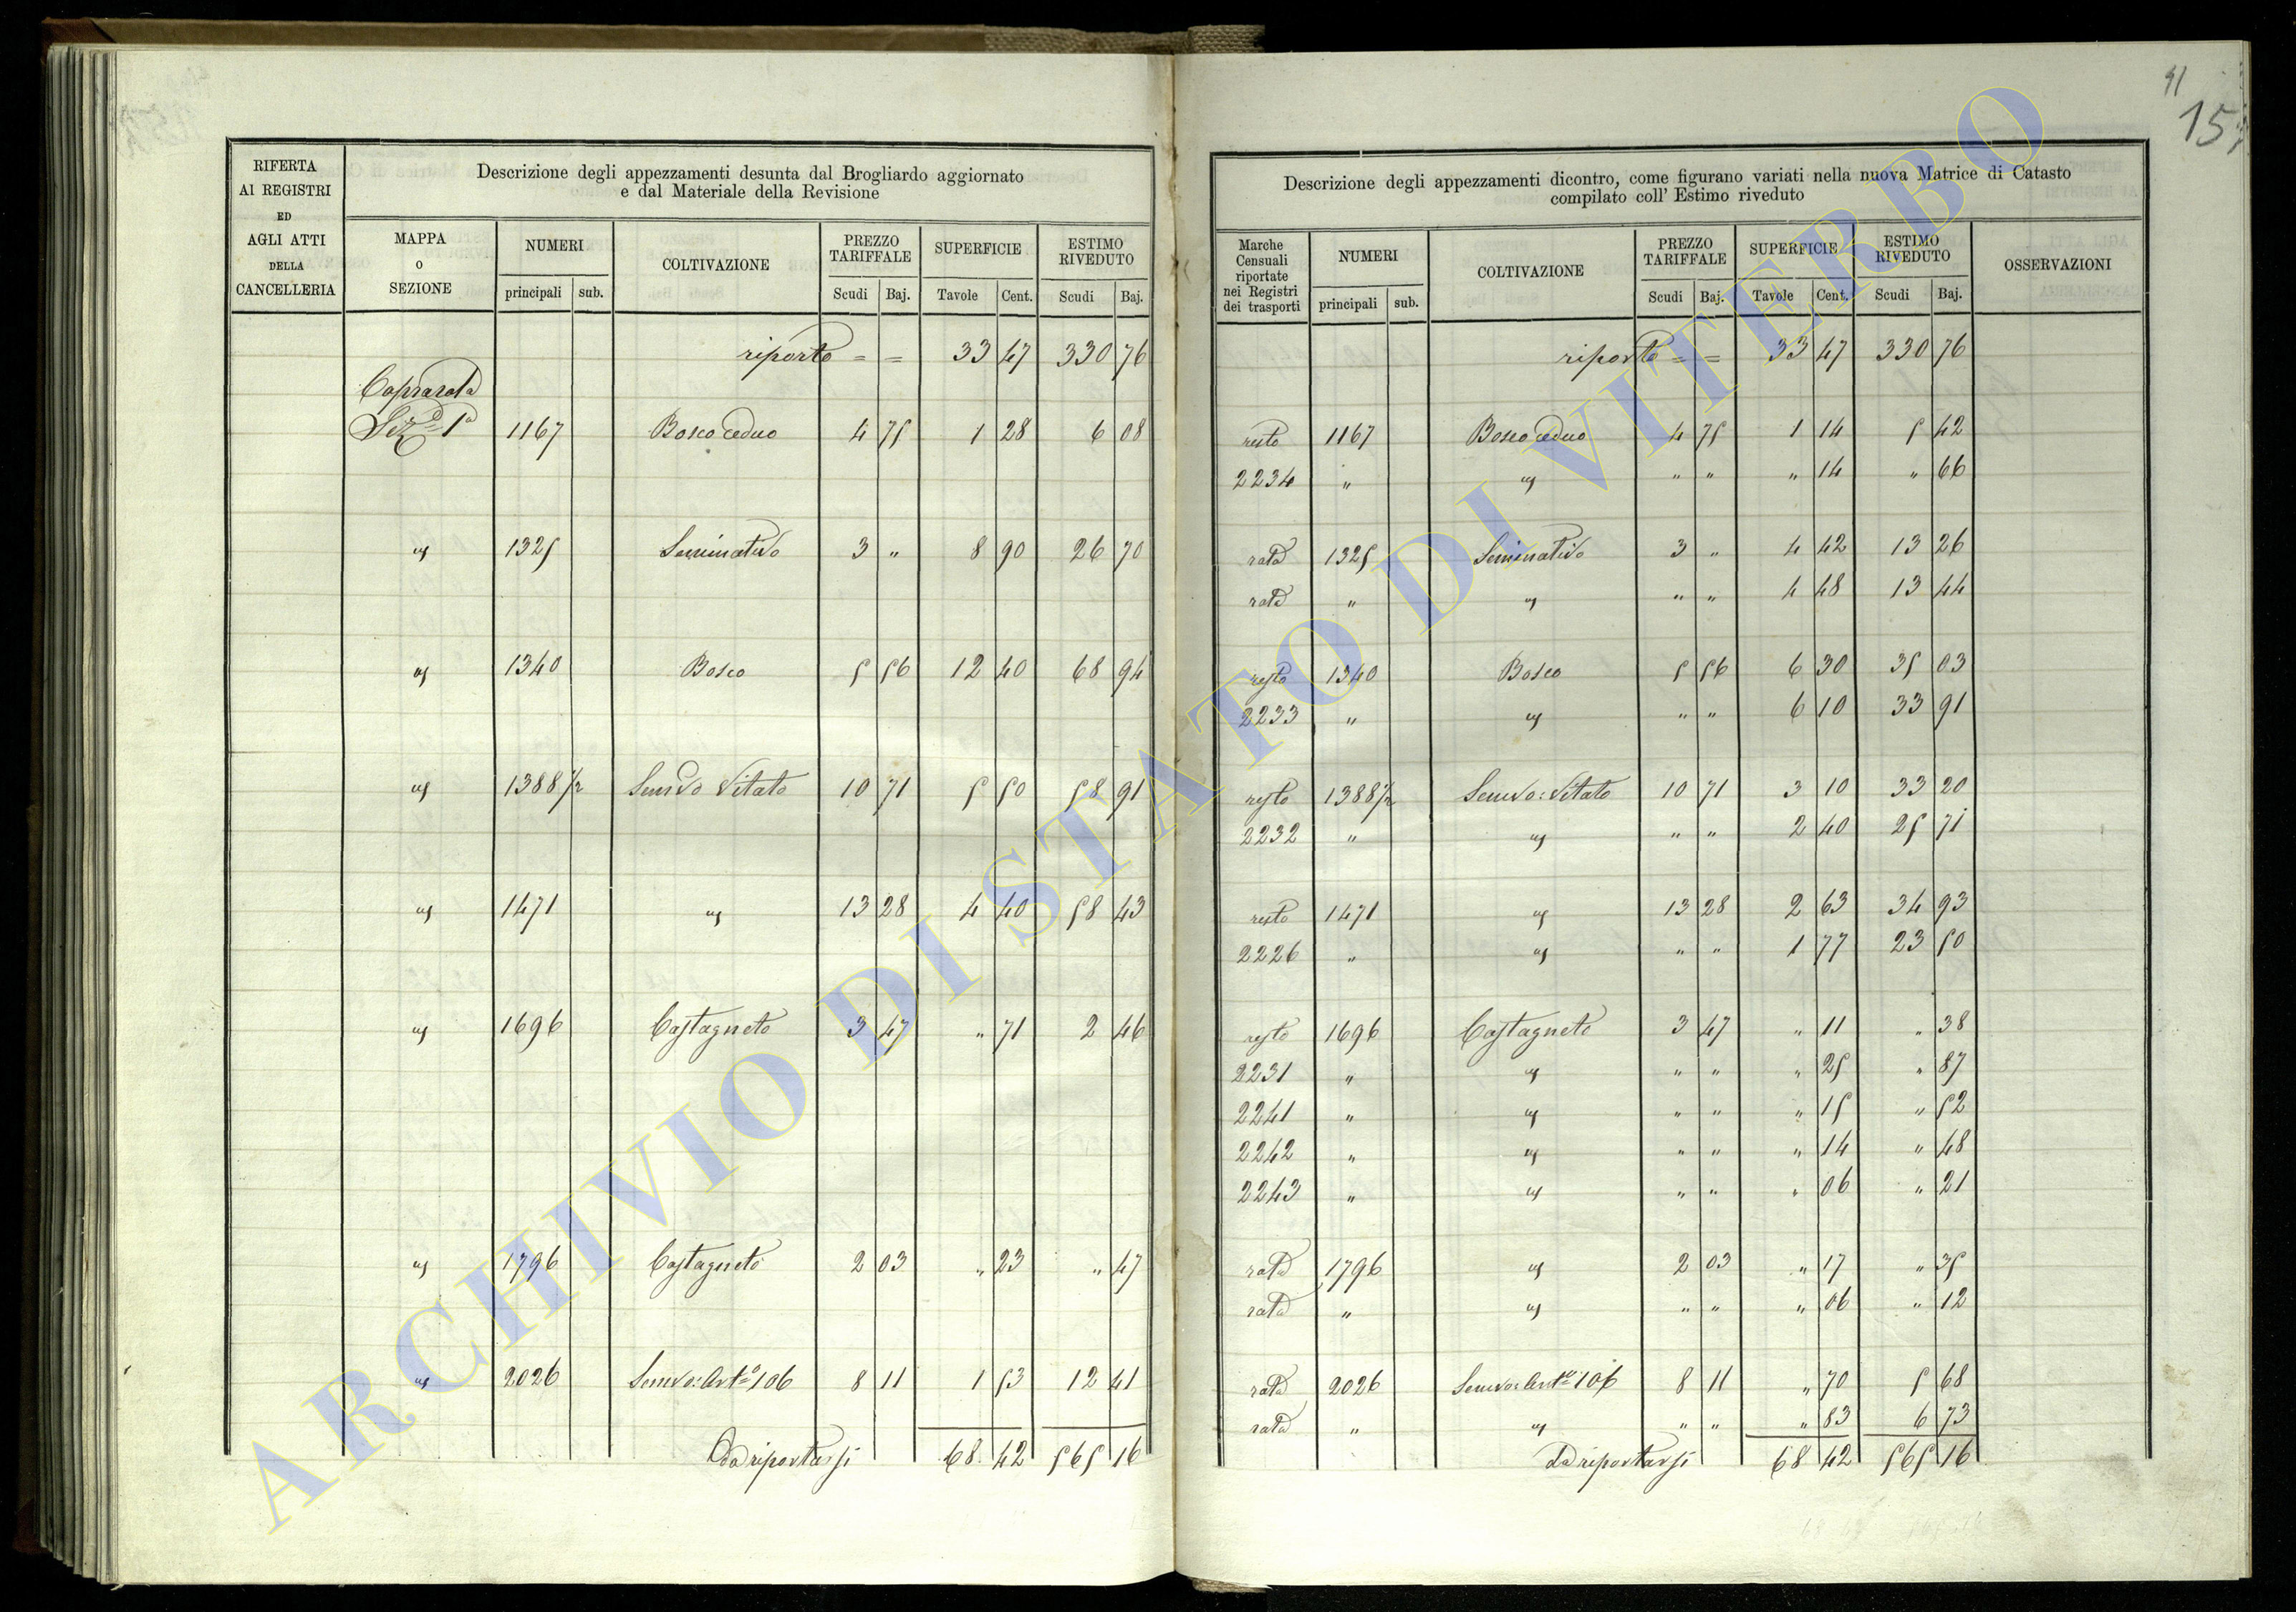 RIFERTA
AI REGISTRI
ED
AGLI ATTI
DELLA
CANCELLERIA
Descrizione degli appezzamenti desunta dal Brogliardo aggiornato
e dal Materiale della Revisione
MAPPA
O
SEZIONE
NUMERI
principali sub.
COLTIVAZIONE
PREZZO
TARIFFALE
Scudi Baj.
SUPERFICIE
Tavole Cent.
ESTIMO
RIVEDUTO
Scudi Baj.
riporto = = 33 47 330 76
Caprarola
Sez.e 1a 1167 Bosco ceduo 4 75 1 28 6 08
us 1325 Seminativo 3 " 8 90 26 70
us 1340 Bosco 5 56 12 40 68 94
us 1388 1/2 Semvo Vitato 10 71 5 50 58 91
us 1471 us 13 28 4 40 58 43
us 1696 Castagneto 3 47 " 71 2 46
us 1796 Castagneto 2 03 " 23 " 47
us 2026 Semvo: Arto 106 8 11 1 53 12 41
Da riportarsi 68 42 565 16
41
15
Descrizione degli appezzamenti dicontro, come figurano variati nella nuova Matrice di Catasto
compilato coll' Estimo riveduto
Marche
Censuali
riportate
nei Registri
dei trasporti
NUMERI
principali sub.
COLTIVAZIONE
PREZZO
TARIFFALE
Scudi Baj.
SUPERFICIE
Tavole Cent.
ESTIMO
RIVEDUTO
Scudi Baj.
OSSERVAZIONI
riporto = = 33 47 330 76
resto 1167 Bosco ceduo 4 75 1 14 5 42
2234 " us " " " 14 " 66
rata 1325 Seminativo 3 " 4 42 13 26
rata " us " " 4 48 13 44
resto 1340 Bosco 5 56 6 30 35 03
2233 " us " " 6 10 33 91
resto 1388 1/2 Semvo: Vitato 10 71 3 10 33 20
2232 " us " " 2 40 25 71
resto 1471 us 13 28 2 63 34 93
2226 " us " " 1 77 23 50
resto 1696 Castagneto 3 47 " 11 " 38
2231 " us " " " 25 " 87
2241 " us " " " 15 " 52
2242 " us " " " 14 " 48
2243 " us " " " 06 " 21
rata 1796 us 2 03 " 17 " 35
rata " us " " " 06 " 12
rata 2026 Semvo: Arto 106 8 11 " 70 5 68
rata " us " " " 83 6 73
Da riportarsi 68 42 565 16
ARCHIVIO DI STATO DI VITERBO